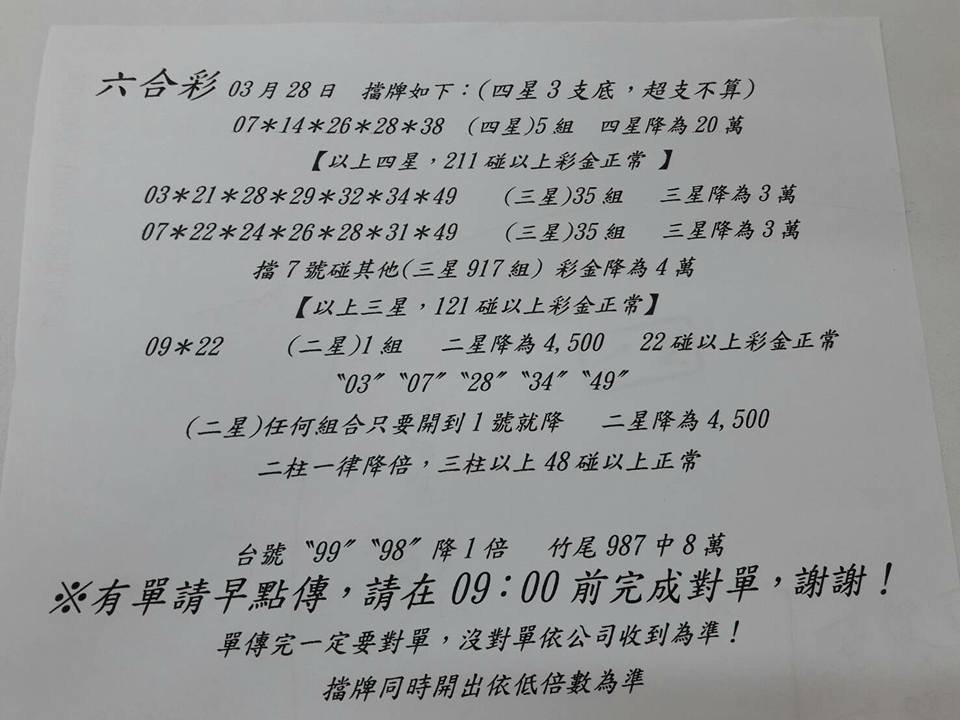 六合彩 03月28日 擋牌如下：(四星3支底，超支不算)
07＊14＊26＊28＊38 (四星)5組 四星降為20萬
【以上四星，211碰以上彩金正常 】
03＊21＊28＊29＊32＊34＊49 (三星)35組 三星降為3萬
07＊22＊24＊26＊28＊31＊49 (三星)35組 三星降為3萬
擋7號碰其他(三星917組) 彩金降為4萬
【以上三星，121碰以上彩金正常】
09＊22 (二星)1組 二星降為4,500 22碰以上彩金正常
〝03〞〝07〞〝28〞〝34〞〝49〞
(二星)任何組合只要開到1號就降 二星降為4,500
二柱一律降倍，三柱以上48碰以上正常
台號〝99〞〝98〞降1倍 竹尾987中8萬
※有單請早點傳，請在09：00前完成對單，謝謝！
單傳完一定要對單，沒對單依公司收到為準！
擋牌同時開出依低倍數為準